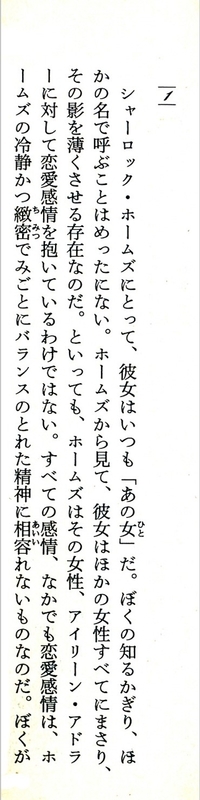 1
シャーロック・ホームズにとって、彼女はいつも「あの女」だ。ぼくの知るかぎり、ほ
かの名で呼ぶことはめったにない。ホームズから見て、彼女はほかの女性すべてにまさり、
その影を薄くさせる存在なのだ。といっても、ホームズはその女性、アイリーン・アドラ
ーに対して恋愛感情を抱いているわけではない。すべての感情、なかでも恋愛感情は、ホ
ームズの冷静かつ緻密でみごとにバランスのとれた精神に相容れないものなのだ。ぼくが